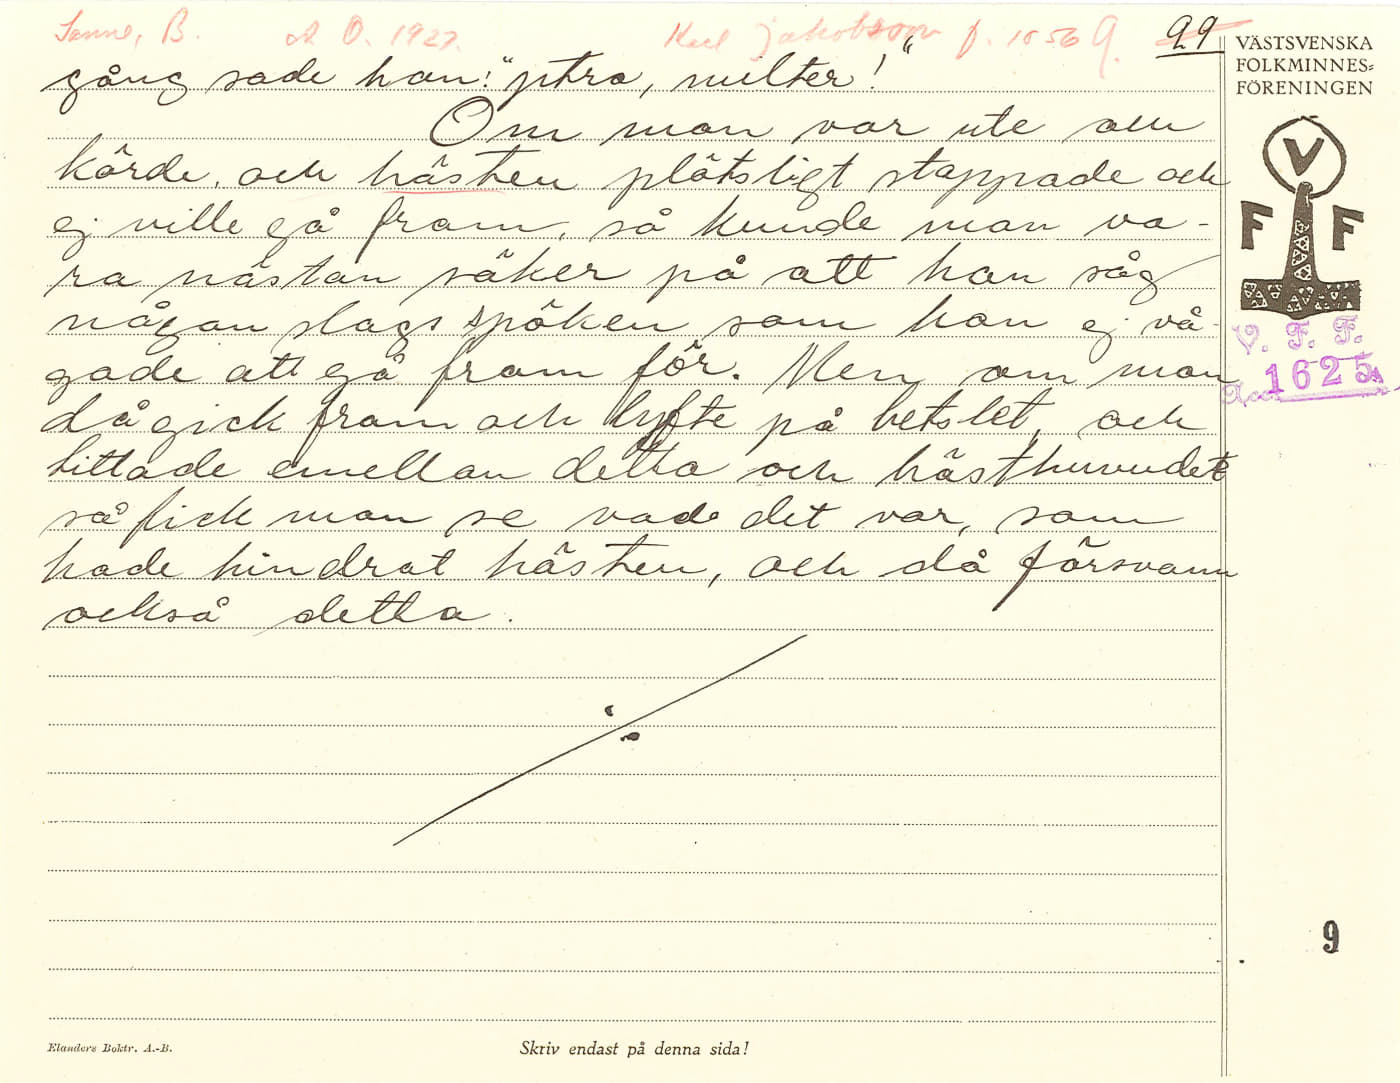 Sanne, B. 1927. Karl Jakobsson f. 1856 9. 29
gång sade han: "ptro, milter!"
Om man var ute och
körde, och hästen plötsligt stoppade och
ej ville gå fram, så kunde man va-
ra nästan säker på att han såg
någon slags spöken som han ej vå-
gade att gå fram för. Men om man
då gick fram och lyfte på betslet, och
tittade emellan detta och hästhuvudet
så fick man se vad det var, som
hade hindrat hästen, och då försvann
också detta.
VÄSTSVENSKA
FOLKMINNES=
FÖRENINGEN
V
F F
V. F. F.
1625
9
Elanders Boktr. A.-B.
Skriv endast på denna sida!